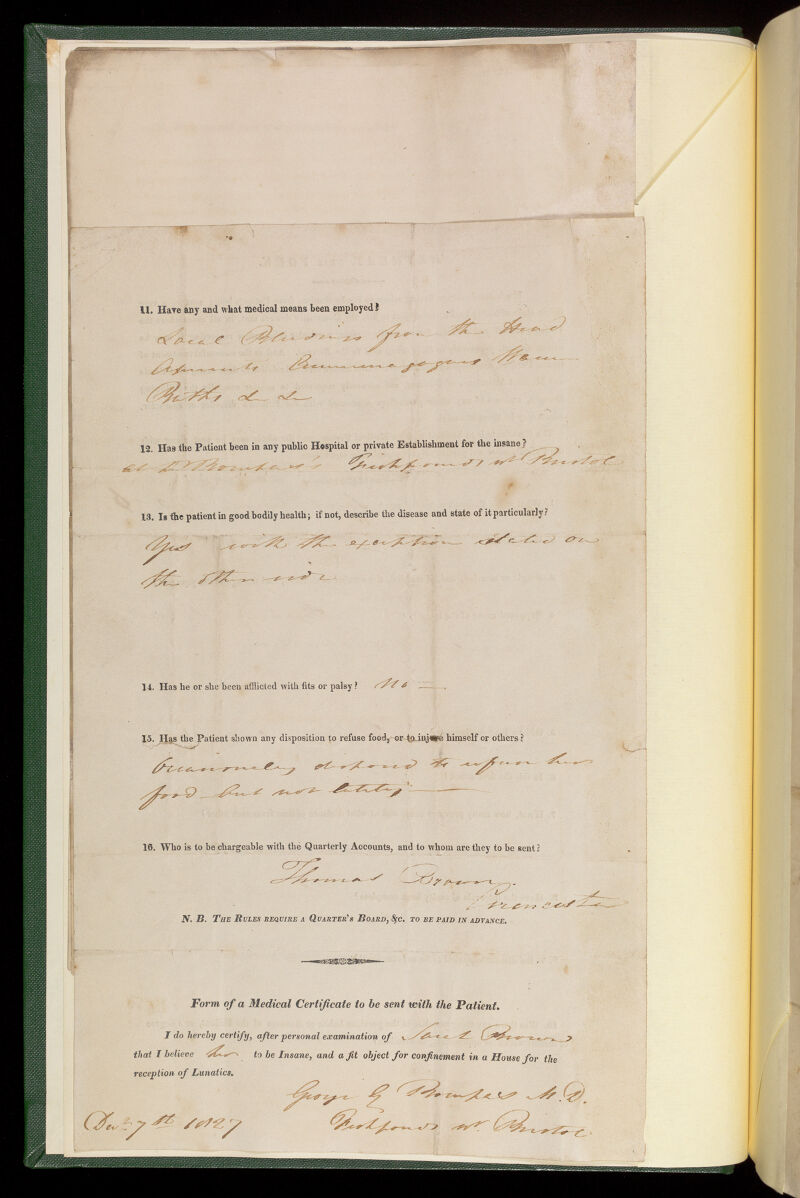 11. Have any and what medical means been employed?
Local Bleedings from the Head
Aperients Emmenagogues Warm
Baths &c &c
12. Has the Patient been in any public Hospital or private Establishment for the insane?
at Dr Bompas's Fishponds nr Bristol
13. Is the patient in good bodily health; if not, describe the disease and state of it particularly?
Yes with the exception stated on
the other side
14. Has he or she been afflicted with fits or palsy? No —
15. Has the Patient shown any disposition to refuse food, or to injure himself or others?
Occasionally disposed to refuse her
food but not lately —
16. Who is to be chargeable with the Quarterly Accounts, and to whom are they to be sent?
Thomas Brown
Cirencester
N. B. The Rules require a Quarter's Board, &c. to be paid in advance.
Form of a Medical Certificate to be sent with the Patient.
I do hereby certify, after personal examination of Brown
that I believe her to be Insane, and a fit object for confinement in a House for the
reception of Lunatics.
George G Bompas M.D.
Decr 7th 1827 Fishponds nr Bristol